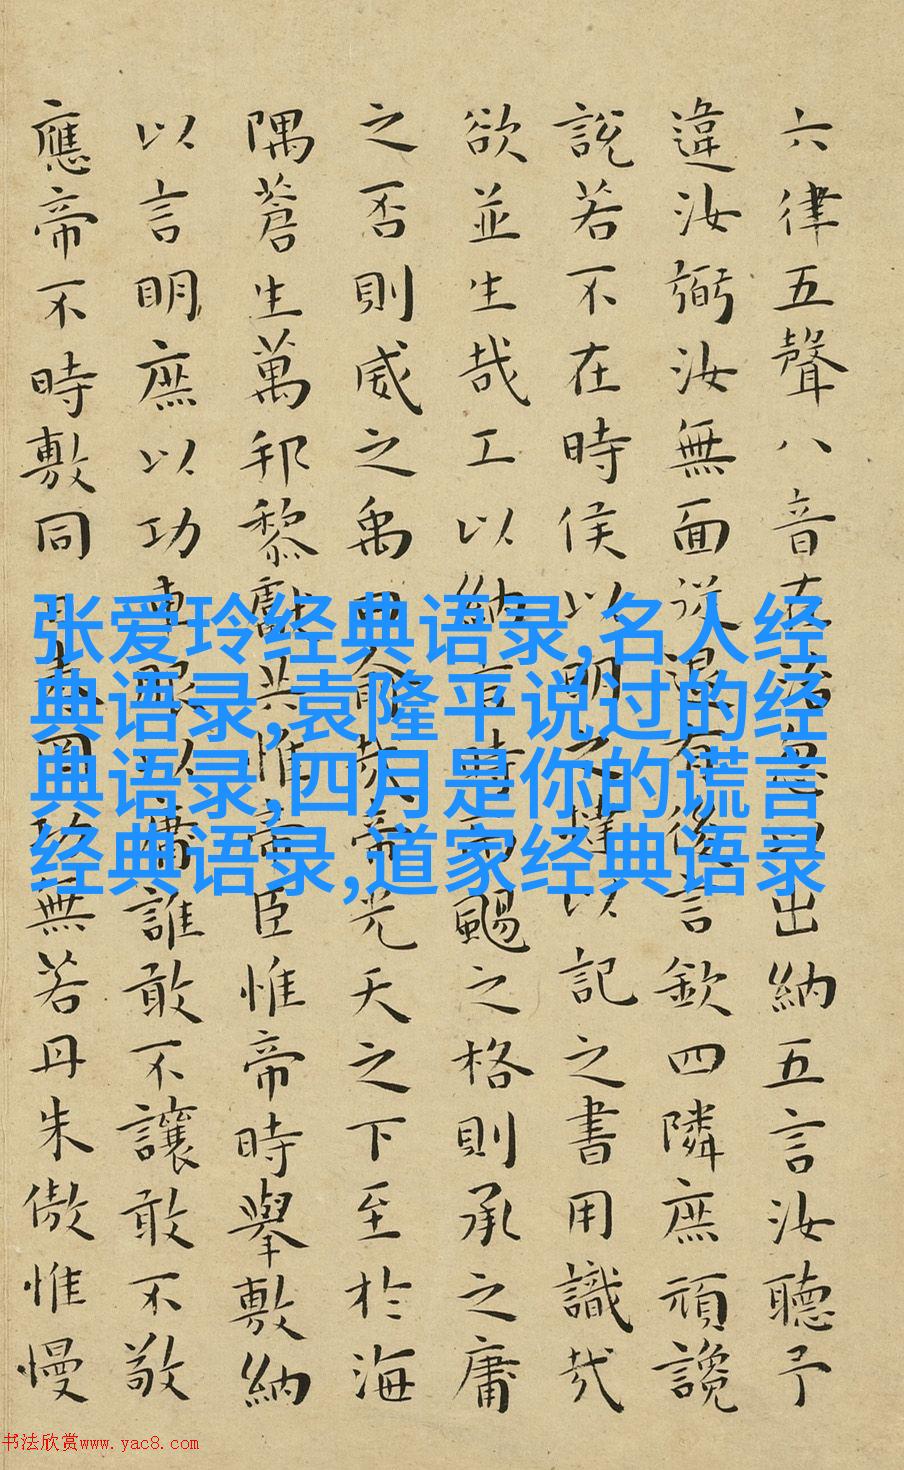 六律五聲八音在治忽以出納五言汝聽予
違汝弼汝無面從退有後言欽四隣庶頑讒
說若不在時侯以明之撻以記之書用識哉
欲並生哉工以納言時而颺之格則承之庸
之否則威之禹曰俞哉帝光天之下至於海
隅蒼生萬邦黎獻共惟帝臣惟帝時舉敷納
以言明庶以功車服以庸誰敢不讓敢不敬
應帝不時敷同日奏罔功無若丹朱傲惟慢
张爱玲经典语录,名人经
典语录,袁隆平说过的经
典语录,四月是你的谎言
经典语录,道家经典语录
书法欣赏www.yac8.com